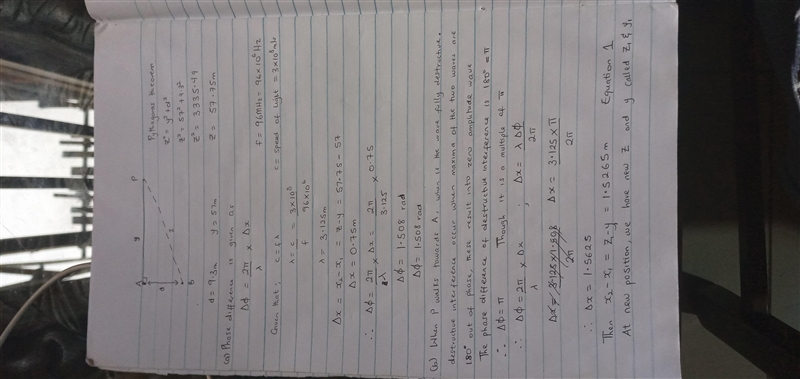 A y P Pythagoras theorem
d z z² = y² + d²
B z² = 57² + 9.3²
z² = 3335.49
d = 9.3m y = 57m z = 57.75m
(a) Phase difference is given as
Δϕ = 2π/λ × Δx f = 96MHz = 96×10⁶Hz
Given that: c = fλ c = speed of light = 3×10⁸m/s
λ = c/f = 3×10⁸/96×10⁶
λ = 3.125m
Δx = x₂ - x₁ = z - y = 57.75 - 57
Δx = 0.75m
∴ Δϕ = 2π/λ × Δx = 2π/3.125 × 0.75
Δϕ = 1.508 rad
Δϕ = 1.508 rad
(b) When P walks towards A, when is the wave fully destructive.
destructive interference occur when maxima of the two waves are
180° out of phase, these result into zero amplitude wave
The phase difference of destructive interference is 180° = π
∴ Δϕ = π Though it is a multiple of π
∴ Δϕ = 2π/λ × Δx ; Δx = λΔϕ/2π
Δx = 3.125×1.508/2π Δx = 3.125×π/2π
∴ Δx = 1.5625
Then x₂ - x₁ = z₁ - y = 1.5265m Equation 1
At new position, we have new z and y called z₁ & y₁